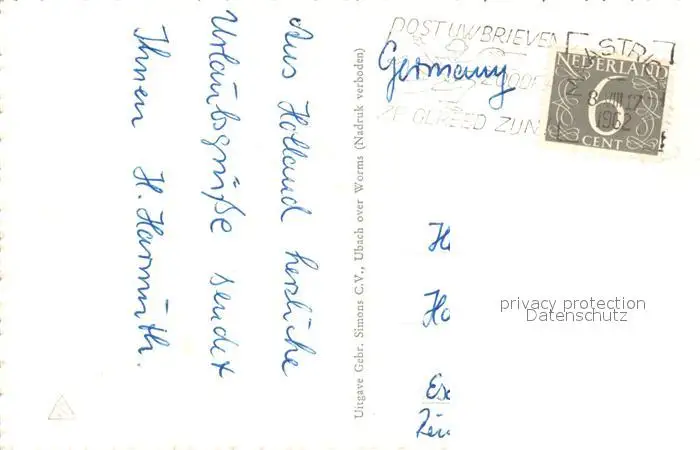 Aus Holland herzliche
Urlaubsgrüße sendet
Ihnen H. Harmuth.
Uitgave Gebr. Simons C.V., Ubach over Worms (Nadruk verboden)
POST UW BRIEVEN
ZP GEREED ZIJN
Germany
NEDERLAND
8 VIII 17
1962
6
CENT
H
Ha
privacy protection
Datenschutz